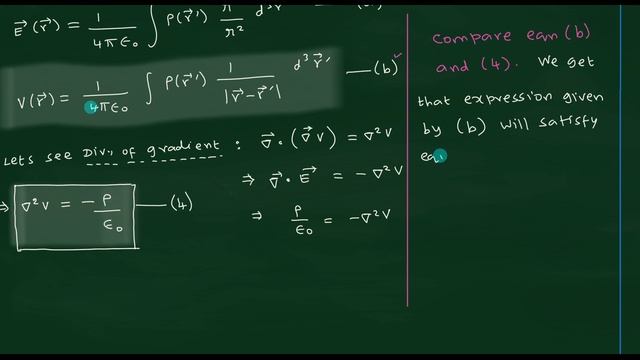 E⃗(r⃗) = 1/4πϵ₀ ∫ ρ(r⃗′) r̂/r²
V(r⃗) = 1/4πϵ₀ ∫ ρ(r⃗′) 1/|r⃗ - r⃗′| d³r⃗′ —(b)
Lets see Div. of gradient : ∇⃗ · (∇⃗ V) = ∇²V
⇒ ∇⃗ · E⃗ = - ∇²V
⇒ ∇²V = - ρ/ϵ₀ —(4)
⇒ ρ/ϵ₀ = - ∇²V
Compare eqn (b)
and (4). We get
that expression given
by (b) will satisfy
eq